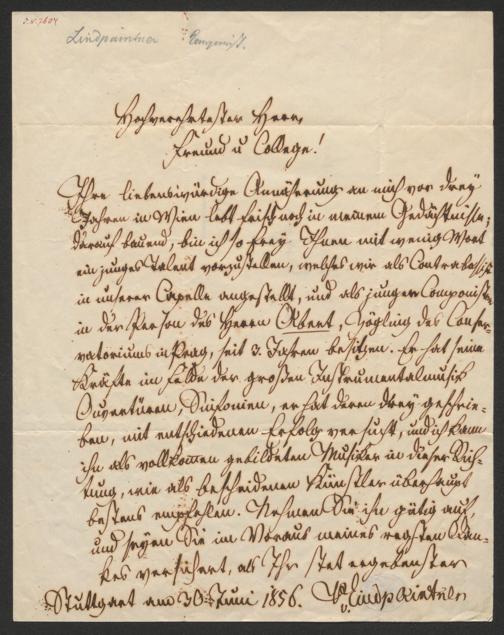 I.N. 7604
Lindpaintner Componist.
Hochverehrtester Herr,
Freund u College!
Ihre liebenswürdige Annäherung an mich vor drey
Jahren in Wien lebt frisch noch in meinem Gedächtnisse;
darauf bauend, bin ich so frey Ihnen mit wenig Wort
ein junges Talent vorzustellen, welches wir als Contrabassist
in unserer Capelle angestellt, und als jungen Componisten
in der Person des Herrn Abert, Zögling des Conser-
vatoriums in Prag, seit 3. Jahren besitzen. Er hat seine
Kräfte im Felde der großen Instrumentalmusik
Ouvertüren, Sinfonien, er hat deren drey geschrie-
ben, mit entschiedenen Erfolg versucht, und ich kann
ihn als vollkomen gebildeten Musiker in dieser Rich-
tung, wie als bescheidenen Künstler überhaupt
bestens empfehlen. Nehmen Sie ihn gütig auf,
und seyen Sie im Voraus meines regsten Dan-
kes versichert, als Ihr stets ergebenster
Stuttgart am 30. Juni 1856. Lindpaintner